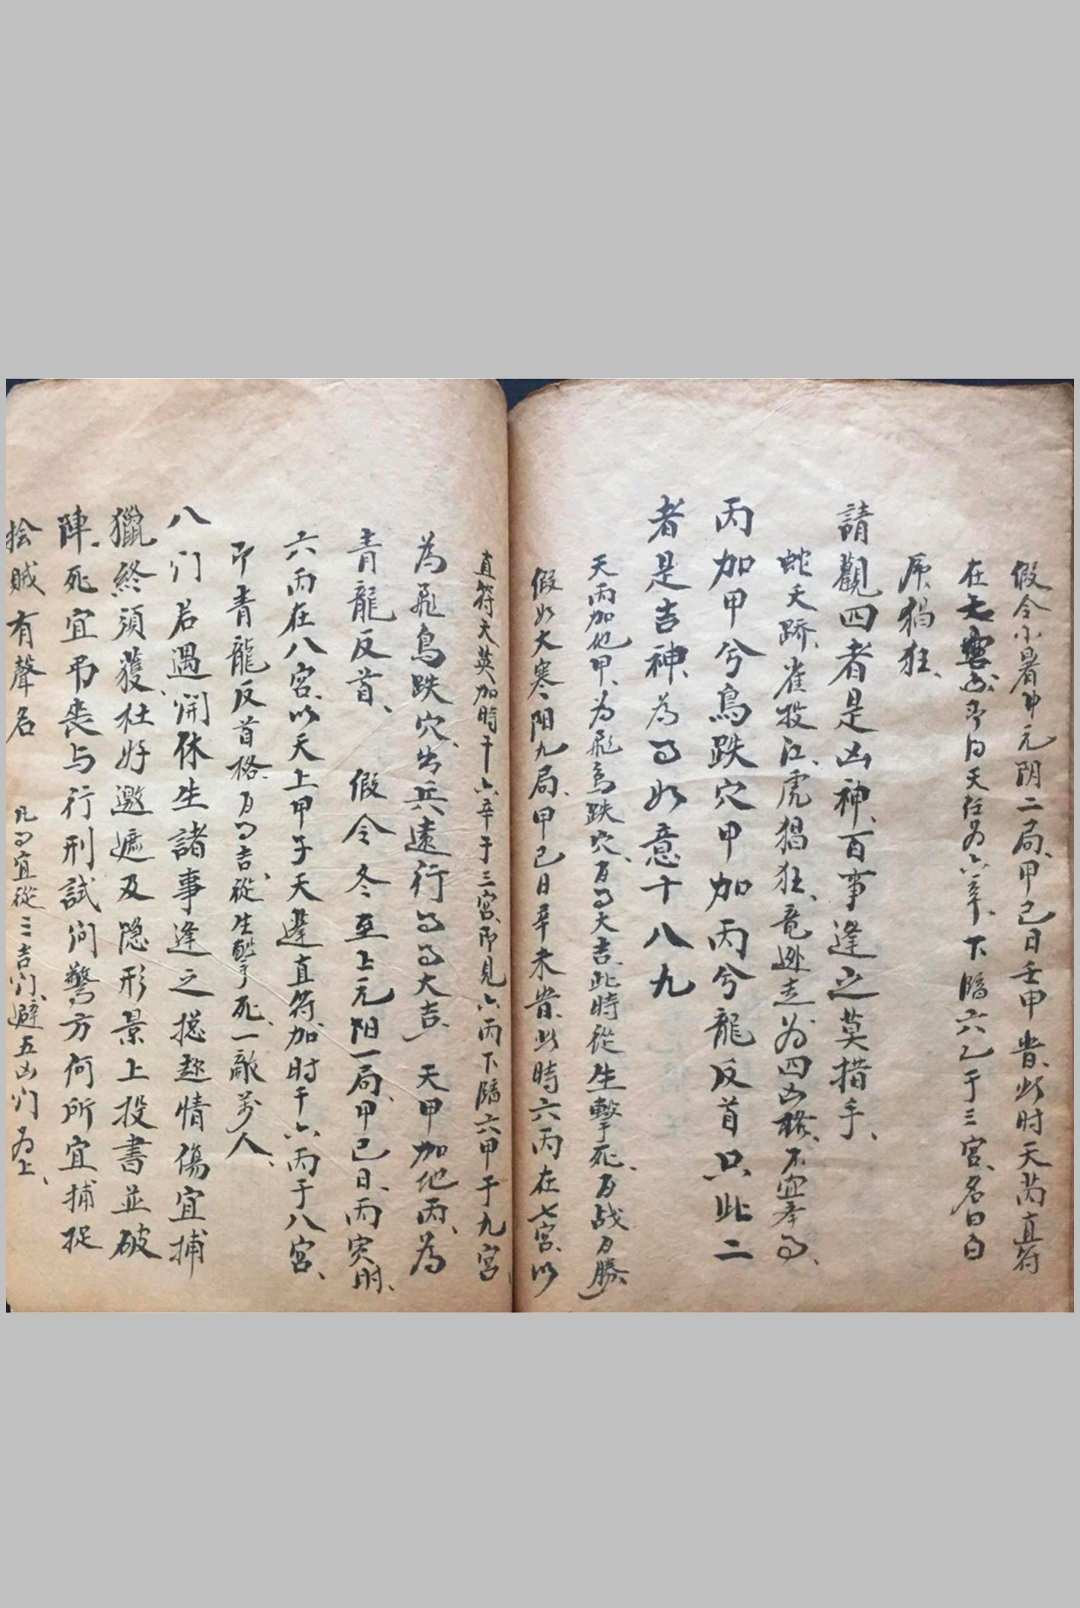 假令小暑中元阴二局、甲己日壬申时、此时天芮直符
在七宫、即为天任为六辛、下临六乙于三宫、名曰白
虎猖狂、
請觀四者是凶神、百事逢之莫措手、
蛇夭跻、雀投江、虎猖狂、竜逃走、为四凶格、不宜举
丙加甲兮鳥跌穴甲加丙兮龍反首只此二
者是吉神、為如意十八九
天丙加地甲、为飛鳥跌穴、百大吉、此時從生擊死、百战百勝、
假如大寒、阳九局、甲己日辛未、此時六丙在七宫、以
直符天英加時干六辛于三宫、即見六丙下臨六甲于九宫
為飛鳥跌穴、出兵遠行大吉、天甲加地丙、為
青龍反首、假令冬至上元阳一局、甲己日、丙寅时、
六丙在八宫、以天上甲子天蓬直符加时干六丙于八宫、
即青龍反首格、百吉從生擊死、一敵万人、
八门若遇開休生諸事逢之總趂情傷宜捕
獵終須獲、杜好邀遮及隐形景上投書並破
陣、死宜吊丧与行刑試问驚方何所宜捕捉
擒贼有聲名 凡宜從三吉门、避五凶门为上、